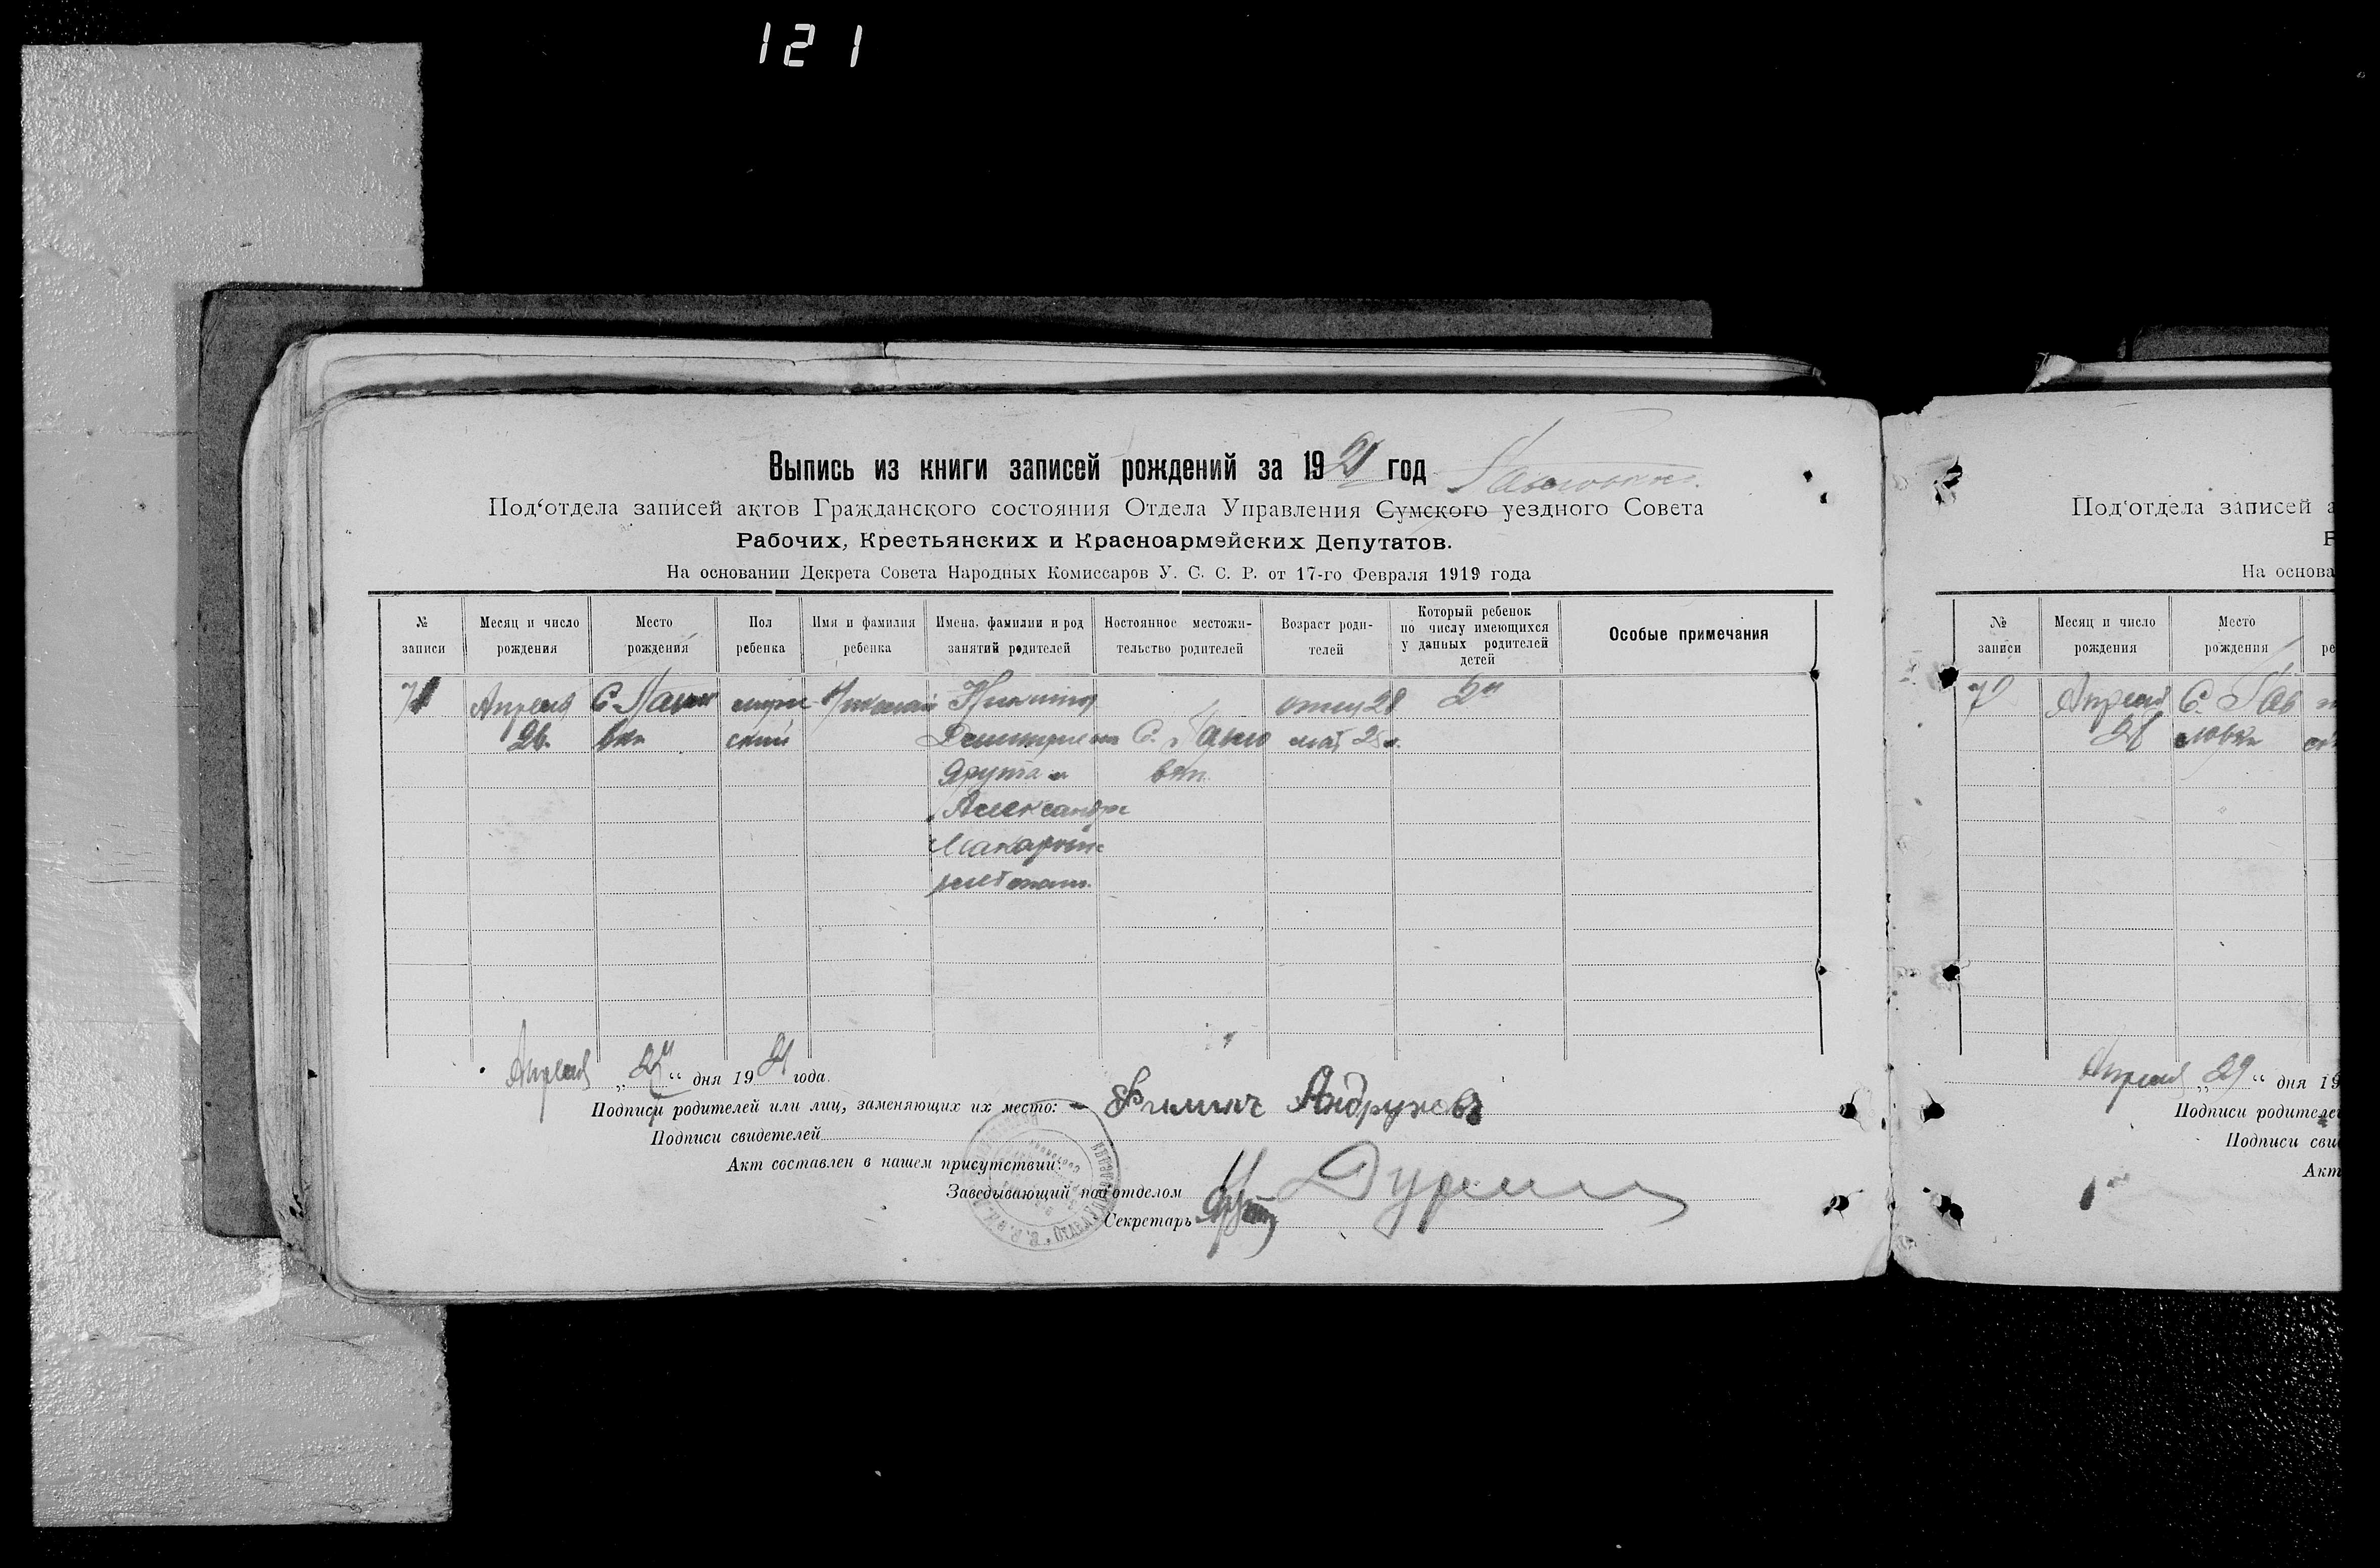 121
Выпись из книги записей рождений за 1921 год
Под‘отдела записей актов Гражданского состояния Отдела Управления Сумского уездного Совета
Рабочих, Крестьянских и Красноармейских Депутатов.
На основании Декрета Совета Народных Комиссаров У. С. С. Р. от 17-го Февраля 1919 года
№ записи
Месяц и число рождения
Место рождения
Пол ребенка
Имя и фамилия ребенка
Имена, фамилии и род занятий родителей
Постоянное местожительство родителей
Возраст родителей
Который ребенок по числу имеющихся у данных родителей детей
Особые примечания
71 Апреля С. Павло мужс Николай Никита отец 28 2й
26. вка ский Дмитриевич С. Павло мат 28
Друта и вка
Александра
Макаровна
хлебопаш.
Апреля „27“ дня 1921 года.
Подписи родителей или лиц, заменяющих их место: Андрухов
Подписи свидетелей
Акт составлен в нашем присутствии:
Заведывающий под‘отделом
Секретарь
Под‘отдела записей а
Р
На основа
№ записи
Месяц и число рождения
Место рождения
ре
72 Апреля С. Пав
28 ловка
Апреля „29“ дня 19
Подписи родителей
Подписи сви
Акт